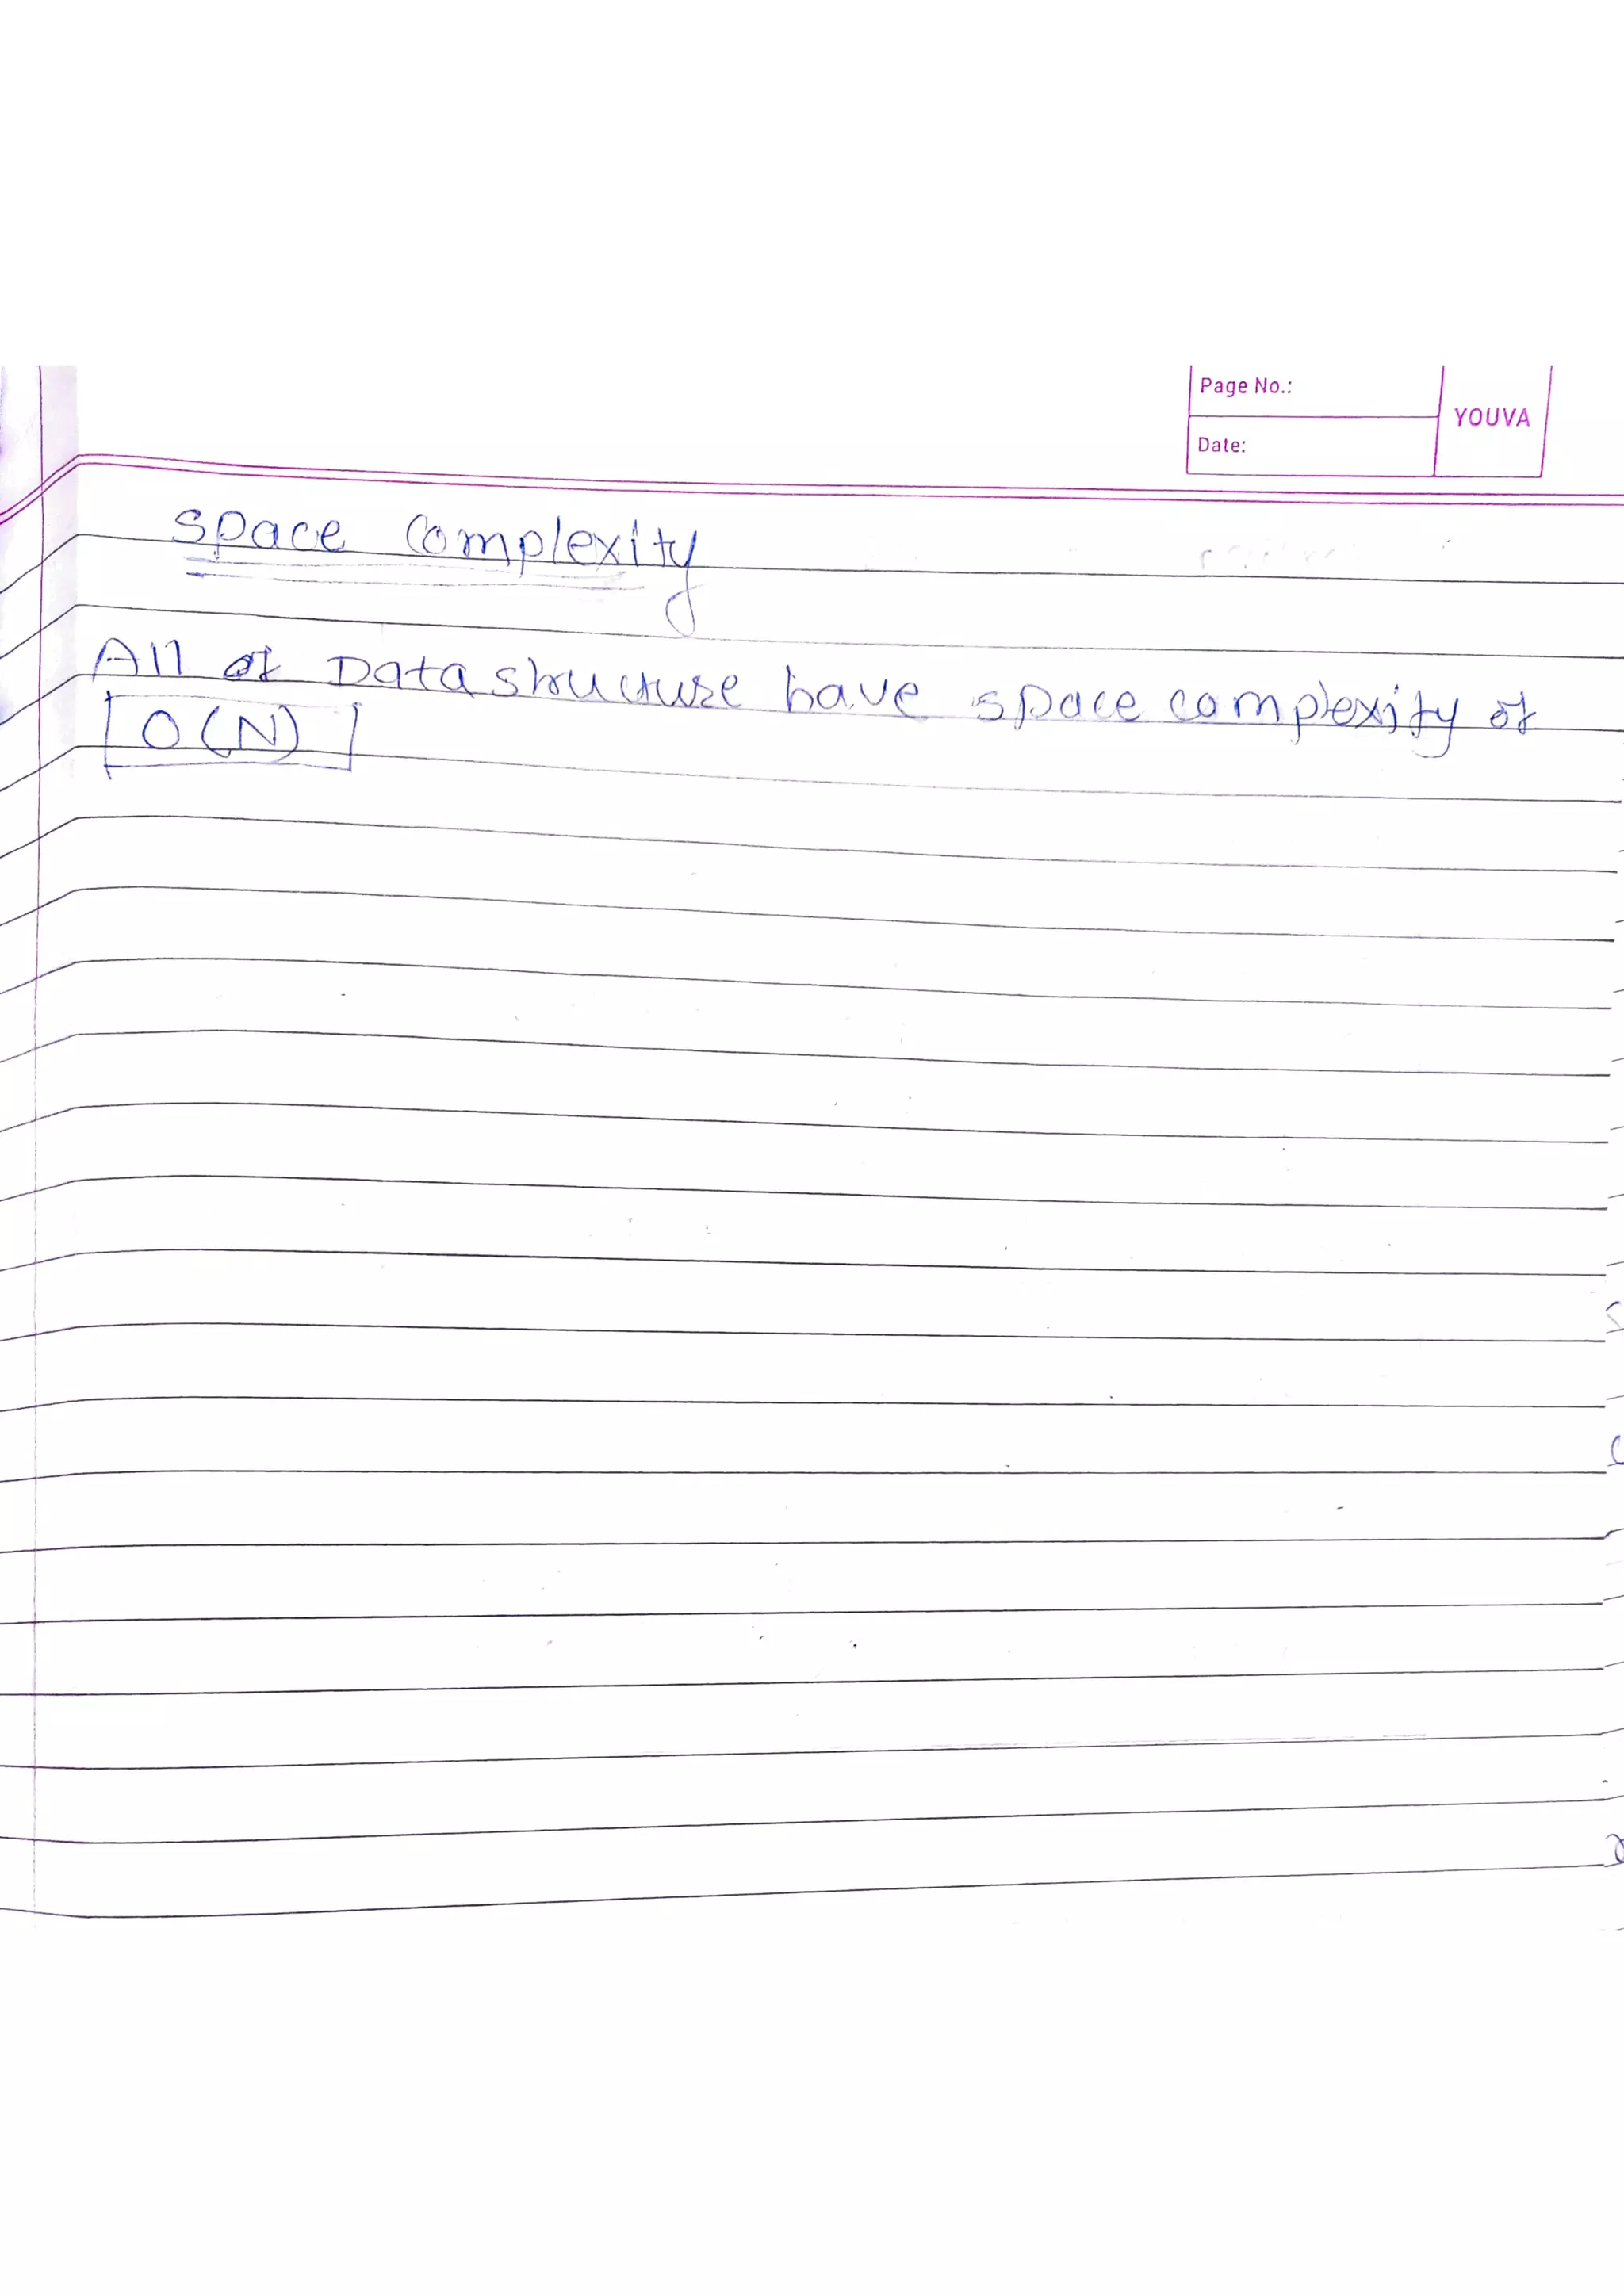 Page No.:
YOUVA
Date:
Space Complexity
All of Data structure have space complexity of
O(N)